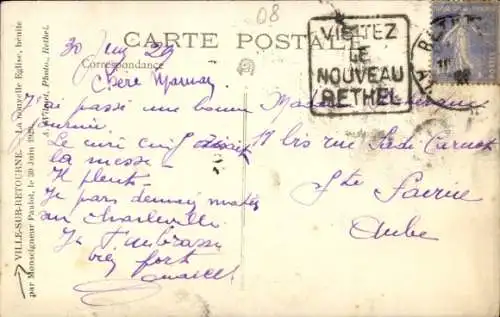 08
CARTE POSTALE
Correspondance
30 Juin 29
Chère Maman
J'ai passé une bonne
journée.
Le curé
la messe –
Il pleut –
Je pars demain matin
sur Charleville
Je t'embrasse
bien fort
Madame
11 bis rue Sadi Carnot
Ste Savine
Aube
VISITEZ
LE
NOUVEAU
RETHEL
VILLE-SUR-RETOURNE. — La nouvelle Eglise, bénite
par Monseigneur Paulot, le 30 Juin 1929.
Photo., Rethel.